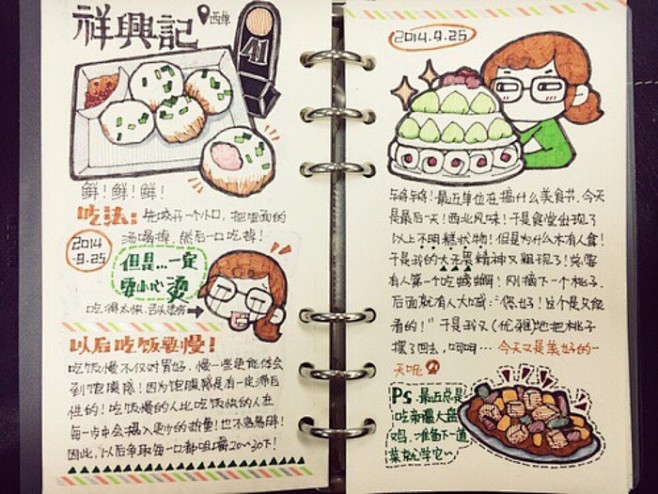 祥興記
西单
41
鲜!鲜!鲜!
吃法:先咬开一个小口,把里面的
汤喝掉,然后一口吃掉!
2014
.9.25
但是...一定
要小心烫
吃得太快,舌头
以后吃饭要慢!
吃饭慢不仅对胃好,慢一些更能体会
到饱腹感!因为饱腹感是有一定滞后
性的!吃饭慢的人比吃饭快的人在
每一步中会摄入更少的热量!也不易发胖!
因此,以后争取每一口都咀嚼20~30下!
2014.9.25
最近单位在搞什么美食节,今天
是最后一天!西北风味!于是食堂出现了
以上不明糕状物!但是为什么木有人拿!
于是我的大无畏精神又出现了!总要
有人第一个吃螃蟹!刚摘下一个桃子,
后面就有人大喊:“您也!这个是只能
看的!”于是我又(优雅)地把桃子
摆了回去,呵呵...今天又是美好的一
天呢
Ps 最近总是
吃新疆大盘
鸡,准备下一道
菜就学它~